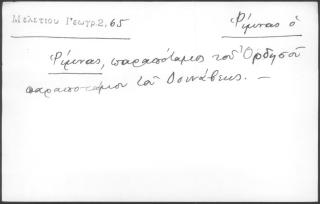 Μελετίου Γεωγρ. 2, 65
Φίμνας ὁ
Φίμνας, παραπόταμος τοῦ Ὀρδησοῦ
παραποτάμου τοῦ Δουνάβεως. —